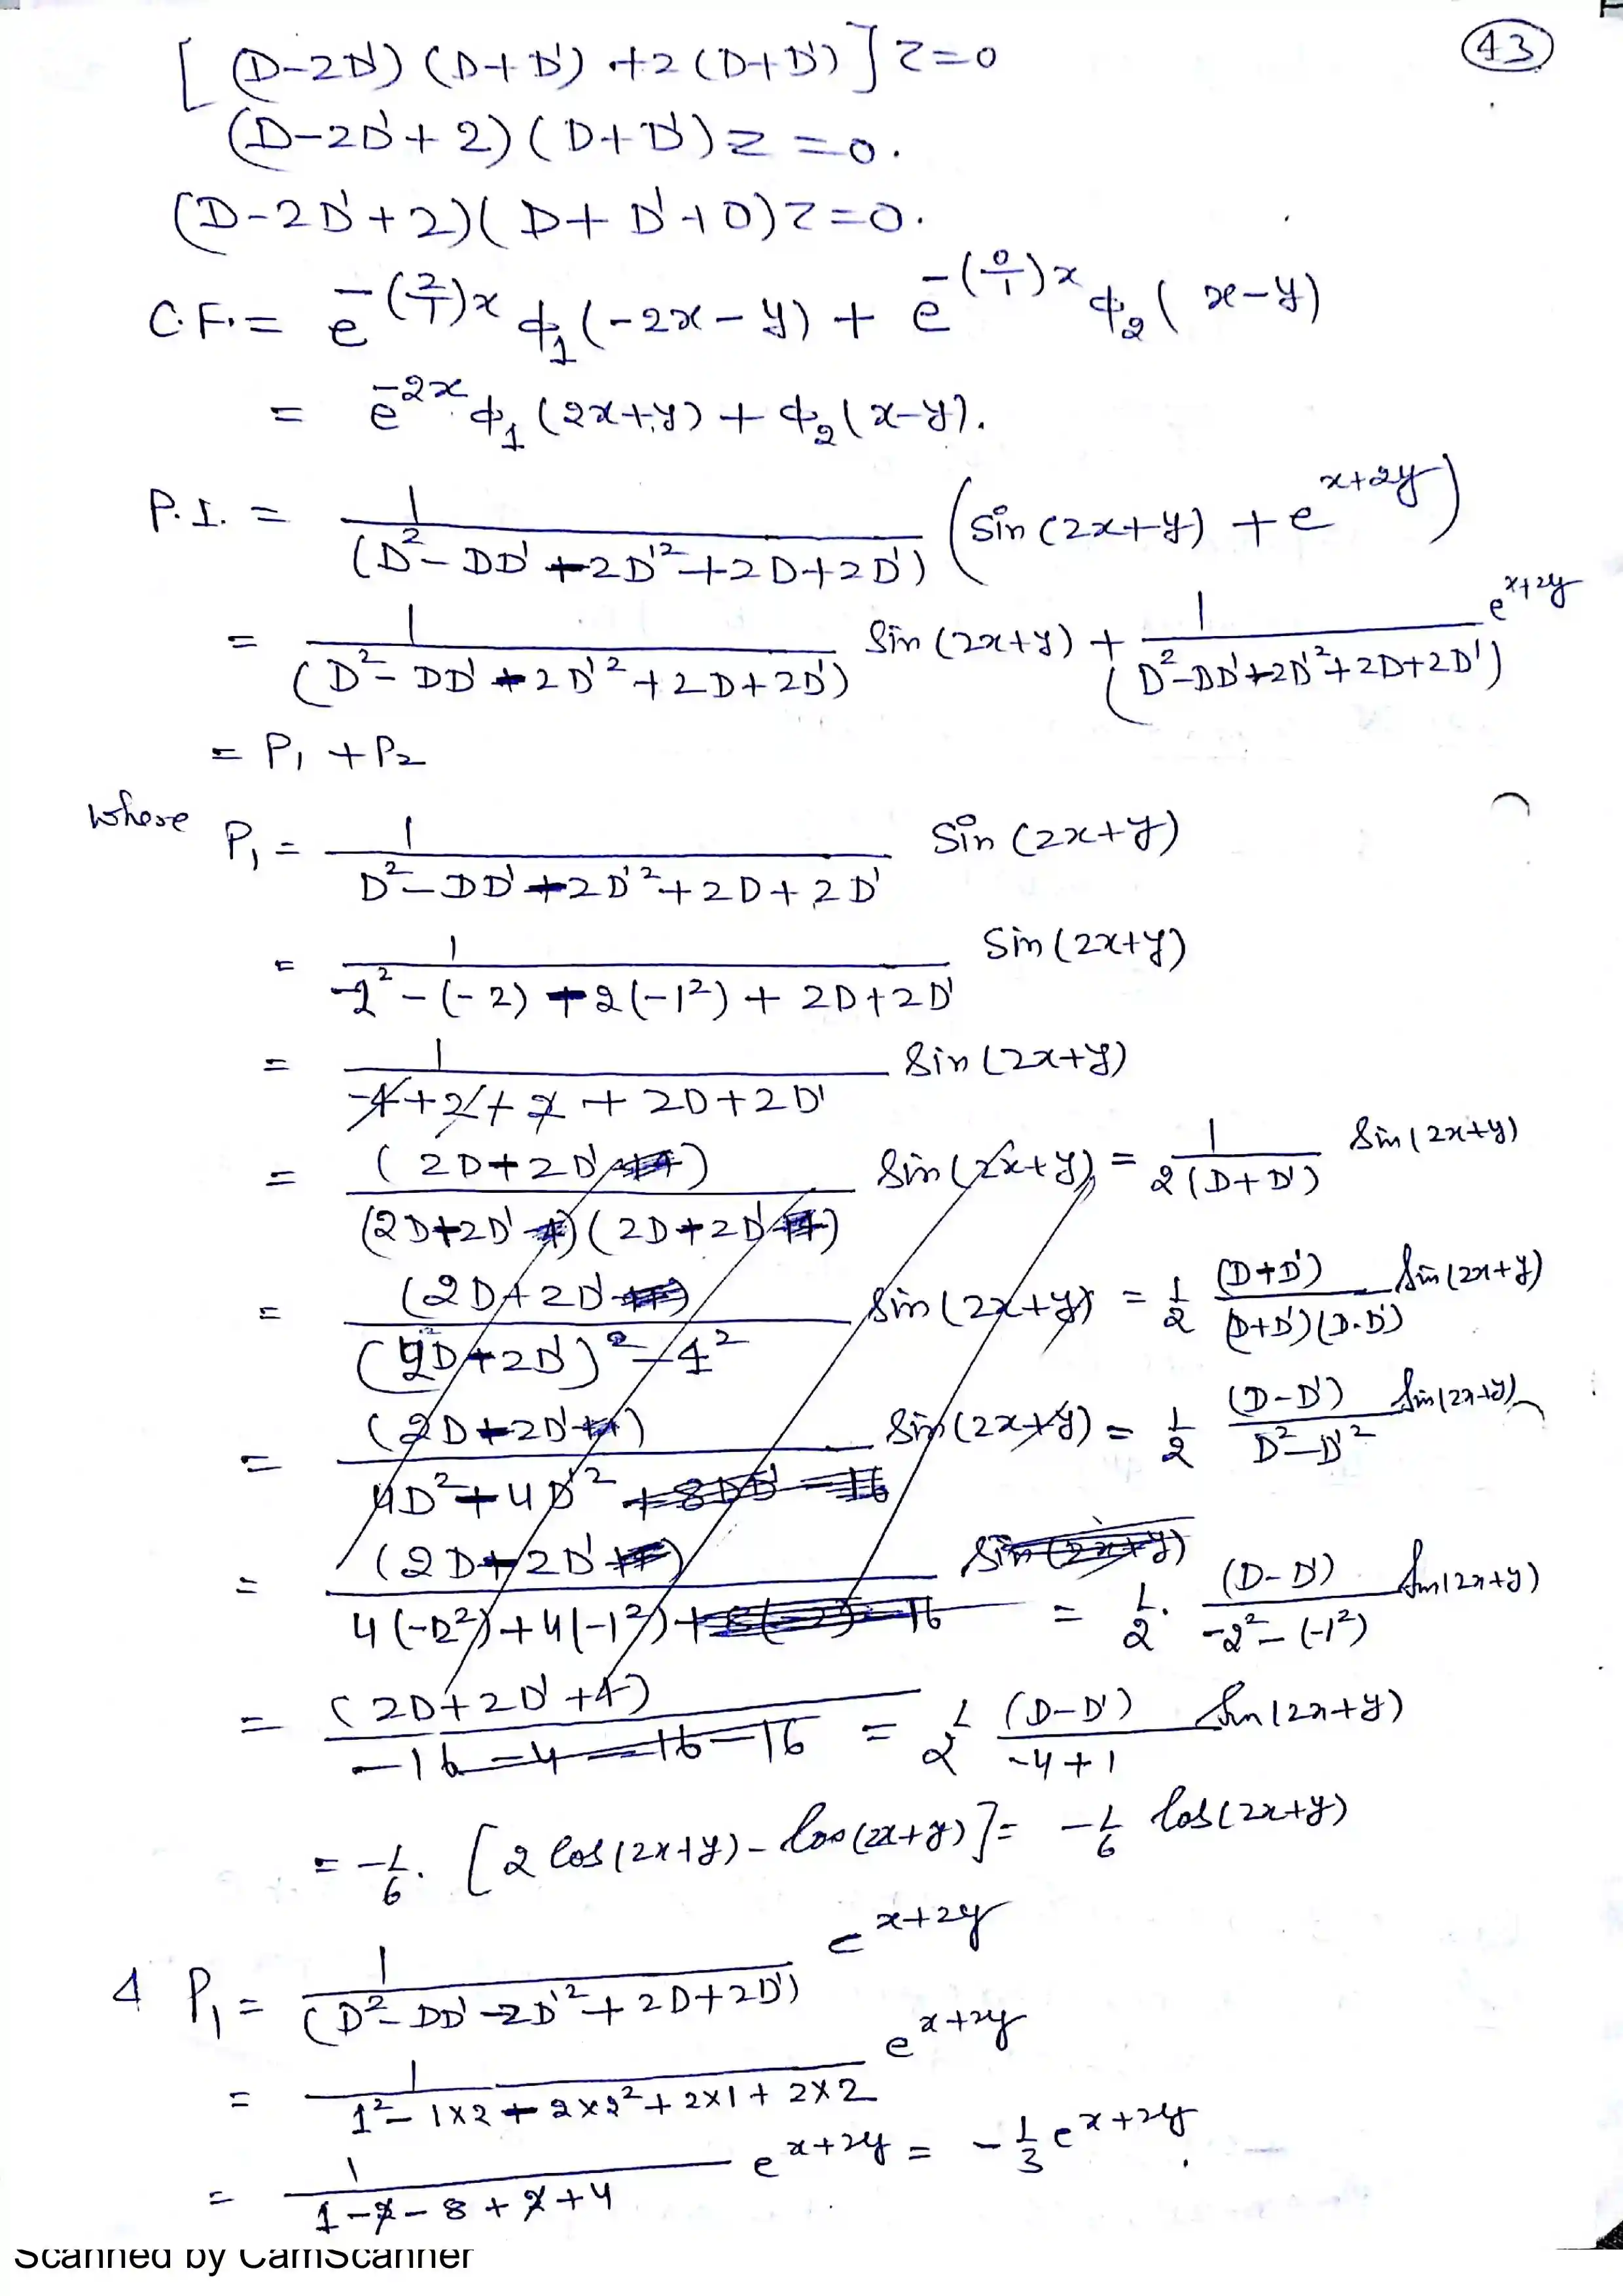 43
[ (D-2D') (D+D') +2 (D+D') ] Z=0
(D-2D'+2) (D+D')Z =0.
(D-2D'+2)(D+D'+0)Z=0.
C.F.= e^-(2/1)x ϕ₁(-2x-y) + e^-(0/1)x ϕ₂(x-y)
= e^-2x ϕ₁(2x+y) + ϕ₂(x-y).
P.I. = 1/(D²-DD'-2D'²+2D+2D') (Sin(2x+y) + e^x+2y)
= 1/(D²-DD'-2D'²+2D+2D') Sin(2x+y) + 1/(D²-DD'+2D'²+2D+2D') e^x+2y
= P₁ + P₂
where P₁ = 1/D²-DD'-2D'²+2D+2D' Sin(2x+y)
= 1/-2²-(-2)-2(-1²)+2D+2D' Sin(2x+y)
= 1/-4+2+2+2D+2D' Sin(2x+y)
= (2D+2D')/(2D+2D')(2D+2D') Sin(2x+y) = 1/2(D+D') Sin(2x+y)
= (2D+2D')/(2D+2D')²-4² Sin(2x+y) = 1/2 (D+D')/(D+D')(D-D') Sin(2x+y)
= (2D+2D')/4D²+4D'²+8DD'-16 Sin(2x+y) = 1/2 (D-D')/D²-D'² Sin(2x+y)
= (2D+2D')/4(-2²)+4(-1²) Sin(2x+y) = 1/2. (D-D')/-2²-(-1²) Sin(2x+y)
= (2D+2D'+4)/-16-4-16-16 = 1/2 (D-D')/-4+1 Sin(2x+y)
= -1/6. [2 Cos(2x+y)- Cos(2x+y)] = -1/6 Cos(2x+y)
& P₁ = 1/(D²-DD'-2D'²+2D+2D') e^x+2y
= 1/1²-1×2-2×2²+2×1+2×2 e^x+2y
= 1/1-2-8+2+4 e^x+2y = -1/3 e^x+2y.
Scanned by CamScanner